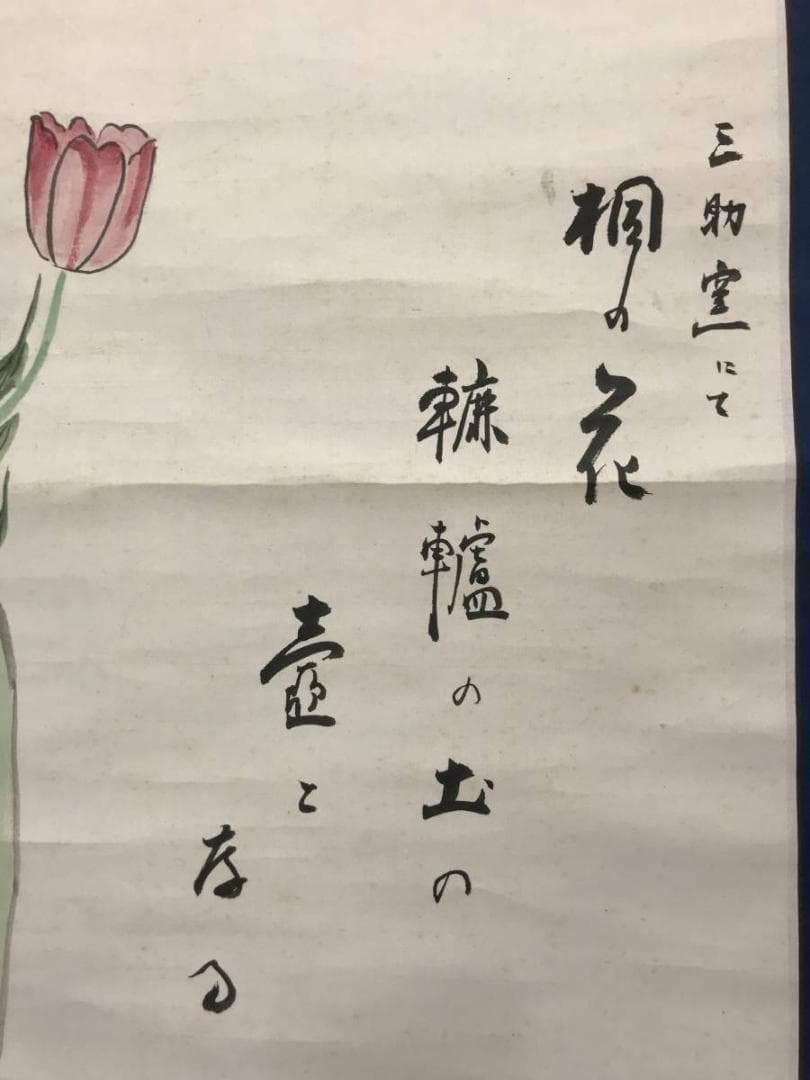 三助窯にて
桐の花
轆轤の土の
壺と
なる